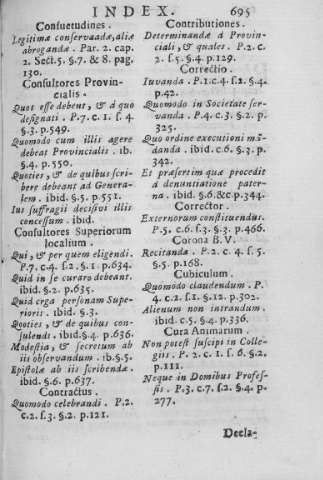 INDEX. 695
Consuetudines.
Legitimæ conservandæ, aliæ
abrogandæ. Par. 2. cap.
2. Sect. 5. §.7. & 8. pag.
130.
Consultores Provin-
cialis.
Quot esse debent, & à quo
designati. P.7. c. 1. ſ. 4.
§.3. p.549.
Quomodo cum illis agere
debeat Provincialis. ib.
§.4. p.550.
Quoties, & de quibus scri-
bere debeant ad Genera-
lem. ibid. §.5. p.551.
Ius suffragii decisivi illis
concessum. ibid.
Consultores Superiorum
localium.
Qui, & per quem eligendi.
P.7. c.4. ſ.2. §.1. p.634.
Quid in se curare debeant.
ibid. §.2. p.635.
Quid erga personam Supe-
rioris. ibid. §.3.
Quoties, & de quibus con-
sulendi. ibid. §.4. p.636.
Modestia, & secretum ab
iis observandum. ib. §.5.
Epistolæ ab iis scribendæ.
ibid. §.6. p.637.
Contractus.
Quomodo celebrandi. P.2.
c.2. ſ.3. §.2. p.121.
Contributiones.
Determinandæ à Provin-
ciali, & quales. P.2. c.
2. ſ.5. §.4. p.129.
Correctio.
Iuvanda. P.1. c.4. ſ.2. §.4.
p.42.
Quomodo in Societate ser-
vanda. P.4. c.3. §.2. p.
325.
Quo ordine executioni mã-
danda. ibid. c.6. §.3. p.
342.
Et præsertim quæ procedit
à denuntiatione pater-
na. ibid. §.6. &c. p.344.
Corrector.
Externorum constituendus.
P.5. c.6. ſ.3. §.3. p.466.
Corona B.V.
Recitanda. P.2. c.4. ſ.5.
§.5. p.168.
Cubiculum.
Quomodo claudendum. P.
4. c.2. ſ.1. §.12. p.302.
Alienum non intrandum.
ibid. c.5. §.4. p.336.
Cura Animarum.
Non potest suscipi in Colle-
giis. P.2. c.1. ſ.6. §.2.
p.111.
Neque in Domibus Profes-
sis. P.3. c.7. ſ.2. §.4. p.
277.
Decla-